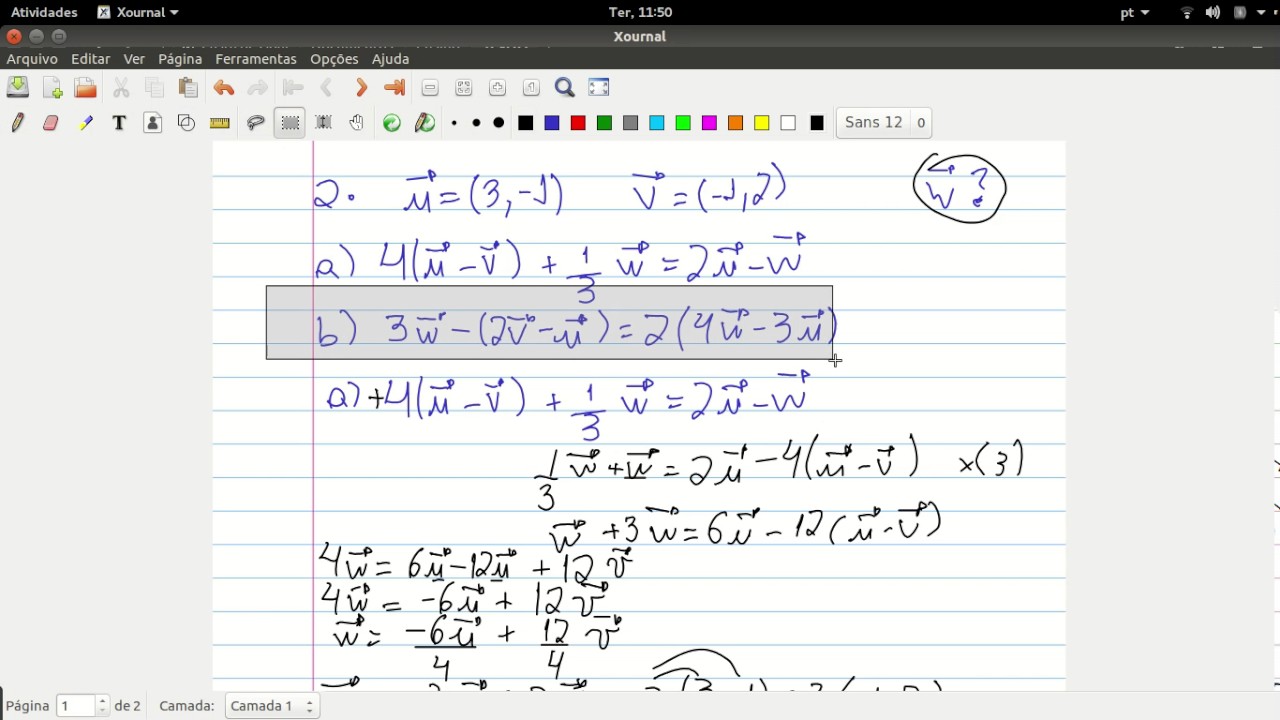 Atividades Xournal Ter, 11:50 pt
Xournal
Arquivo Editar Ver Página Ferramentas Opções Ajuda
T Sans 12 0
2. u⃗ = (3, -1) v⃗ = (-1, 2) w⃗ ?
a) 4(u⃗ - v⃗) + 1/3 w⃗ = 2u⃗ - w⃗
b) 3w⃗ - (2v⃗ - u⃗) = 2(4w⃗ - 3u⃗)
a) +4(u⃗ - v⃗) + 1/3 w⃗ = 2u⃗ - w⃗
1/3 w⃗ + w⃗ = 2u⃗ - 4(u⃗ - v⃗) ×(3)
w⃗ + 3w⃗ = 6u⃗ - 12(u⃗ - v⃗)
4w⃗ = 6u⃗ - 12u⃗ + 12v⃗
4w⃗ = -6u⃗ + 12v⃗
w⃗ = -6u⃗/4 + 12/4 v⃗
Página 1 de 2 Camada: Camada 1